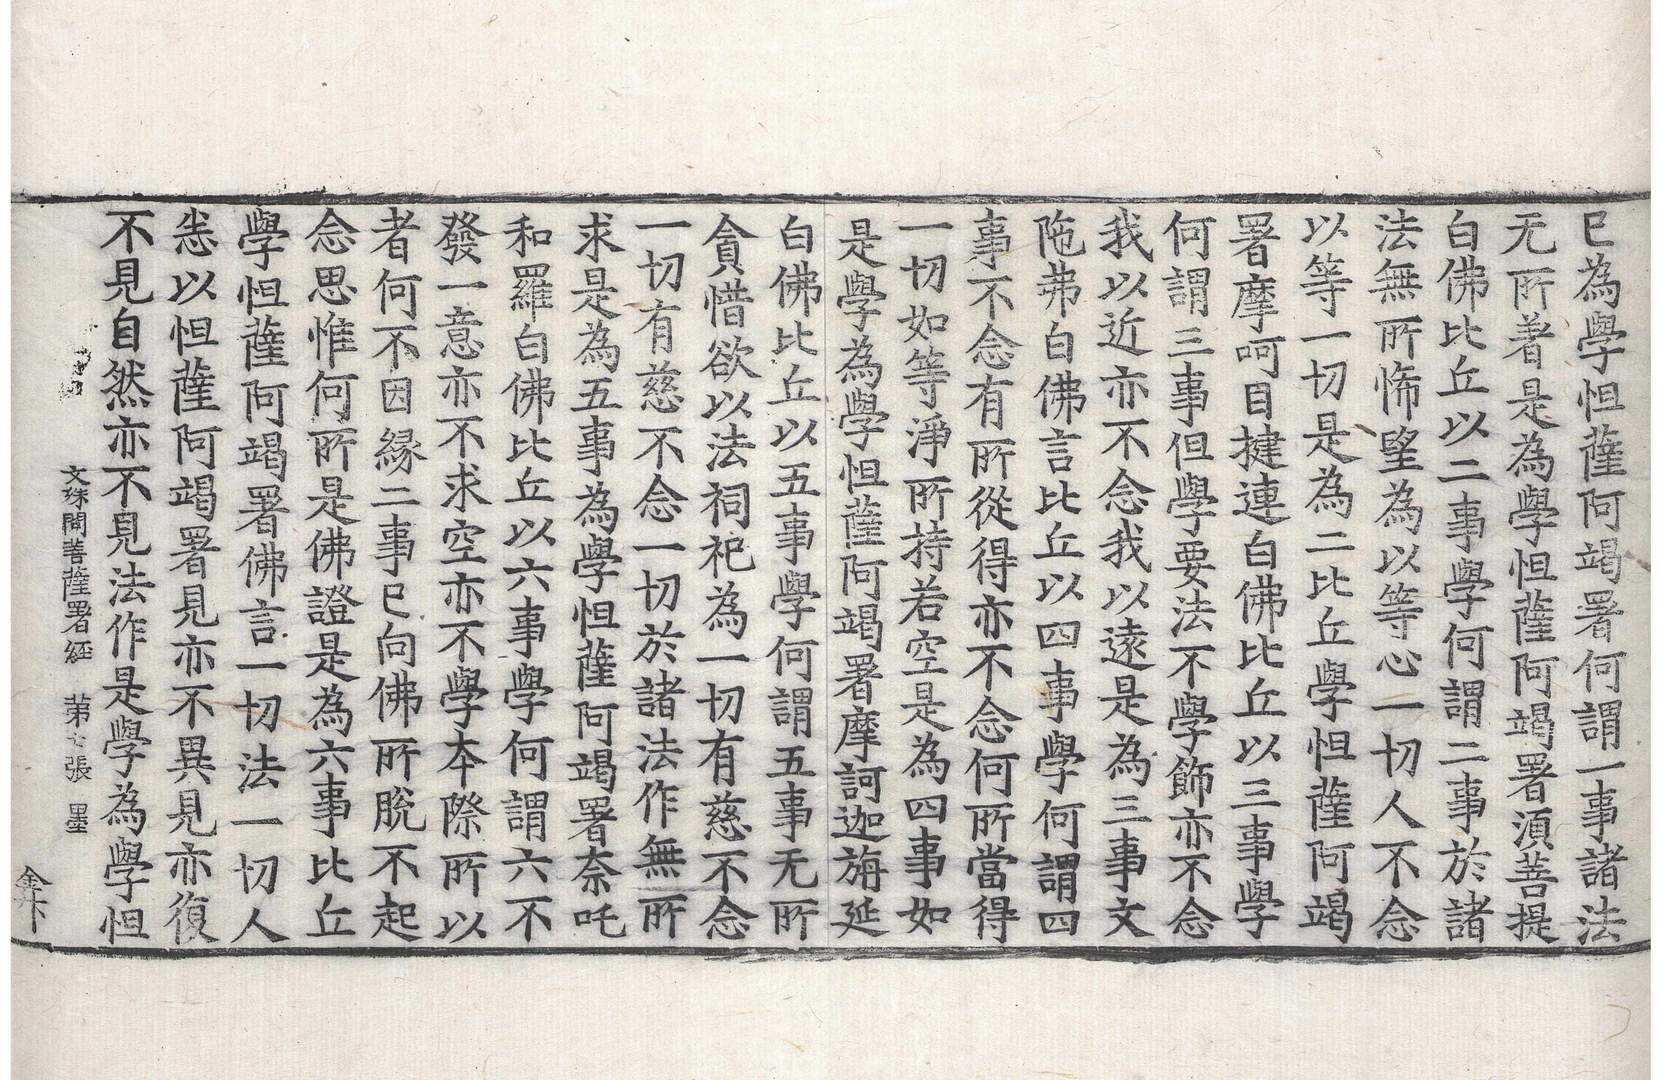 已為學怛薩阿竭署何謂一事諸法
无所著是為學怛薩阿竭署須菩提
白佛比丘以二事學何謂二事於諸
法無所悕望為以等心一切人不念
以等一切是為二比丘學怛薩阿竭
署摩呵目揵連白佛比丘以三事學
何謂三事但學要法不學飾亦不念
我以近亦不念我以遠是為三事文
陁弗白佛言比丘以四事學何謂四
事不念有所從得亦不念何所當得
一切如等淨所持若空是為四事如
是學為學怛薩阿竭署摩訶迦旃延
白佛比丘以五事學何謂五事无所
貪惜欲以法祠祀為一切有慈不念
一切有慈不念一切於諸法作無所
求是為五事為學怛薩阿竭署奈吒
和羅白佛比丘以六事學何謂六不
發一意亦不求空亦不學本際所以
者何不因緣二事已向佛所脫不起
念思惟何所是佛證是為六事比丘
學怛薩阿竭署佛言一切法一切人
恙以怛薩阿竭署見亦不異見亦復
不見自然亦不見法作是學為學怛
文殊問菩薩署經 苐七張 墨